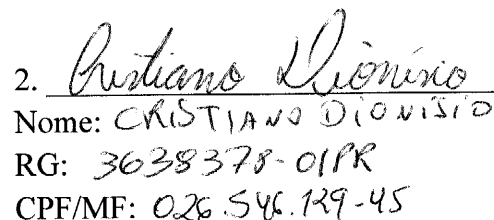 2. Cristiano Dionísio
Nome: CRISTIANO DIONISIO
RG: 3638378-01PR
CPF/MF: 026.546.129-45